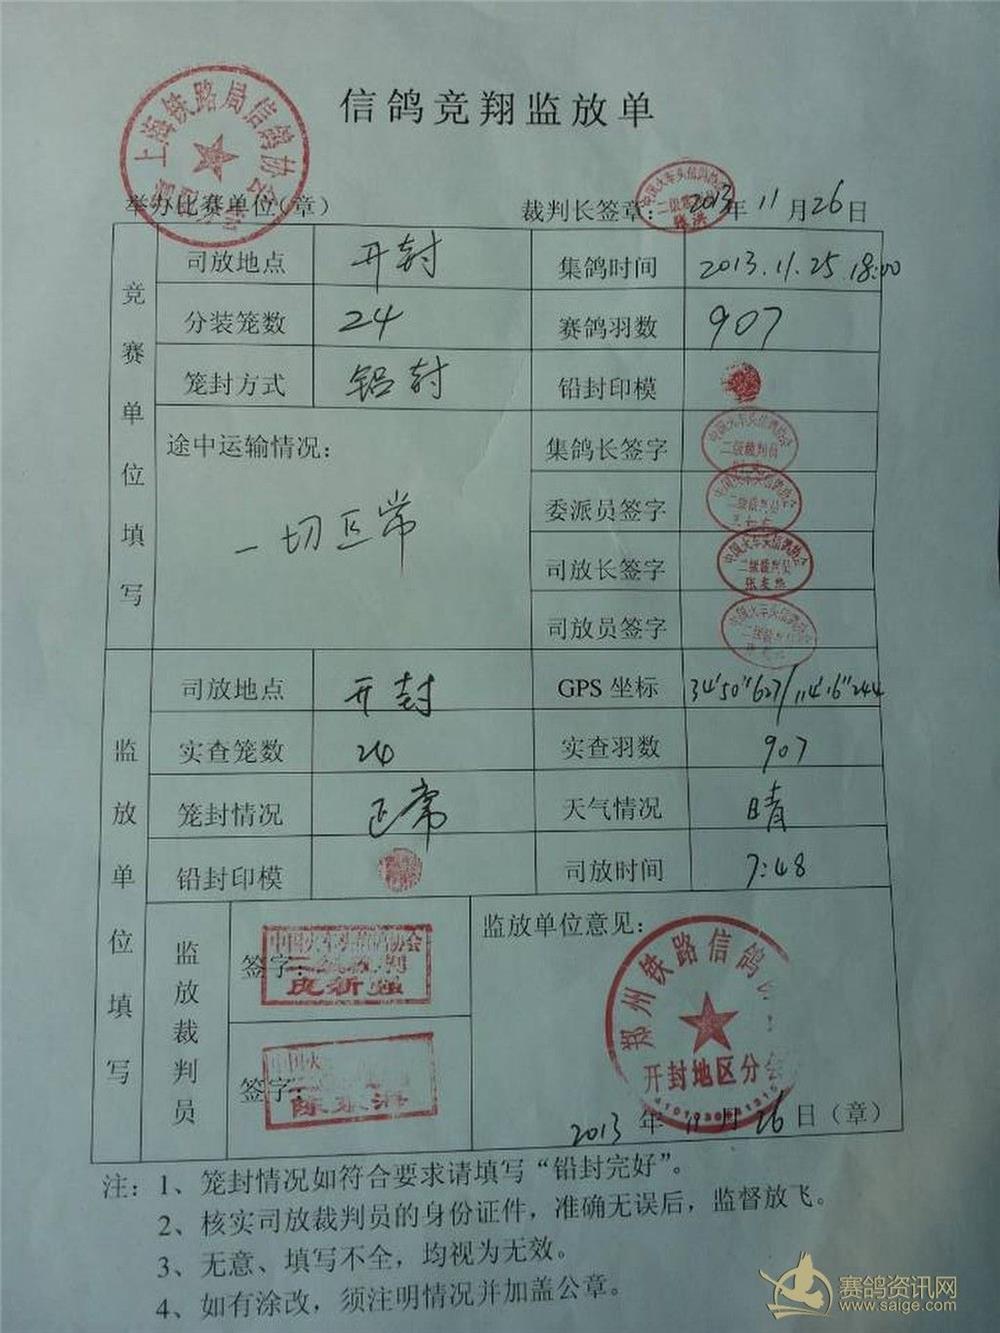 信鸽竞翔监放单
上海铁路局信鸽协会
举办比赛单位（章）
裁判长签章：2013年11月26日
中国火车头信鸽协会
二级裁判员
张洪
竞赛单位填写
司放地点 开封 集鸽时间 2013.11.25 18:00
分装笼数 24 赛鸽羽数 907
笼封方式 铅封 铅封印模
途中运输情况：
一切正常
集鸽长签字
中国火车头信鸽协会
二级裁判员
委派员签字
二级裁判员
司放长签字
中国火车头信鸽协会
二级裁判员
司放员签字
中国火车头信鸽协会
二级裁判员
监放单位填写
司放地点 开封 GPS 坐标 34'50"627/114'16"244
实查笼数 24 实查羽数 907
笼封情况 正常 天气情况 晴
铅封印模 司放时间 7:48
监放裁判员
签字：
签字：
监放单位意见：
郑州铁路信鸽
开封地区分会
2013年11月26日（章）
注：1、笼封情况如符合要求请填写“铅封完好”。
2、核实司放裁判员的身份证件，准确无误后，监督放飞。
3、无意、填写不全，均视为无效。
4、如有涂改，须注明情况并加盖公章。
赛鸽资讯网
www.saige.com